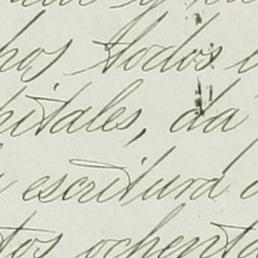 hos todos
pitales, da
escritura
tos ochenta